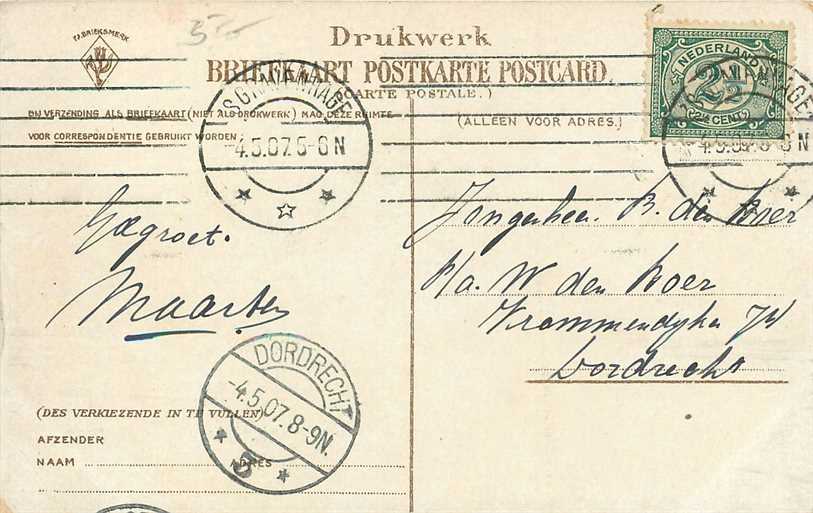 FABRIEKSMERK
5-
Drukwerk
BRIEFKAART POSTKARTE POSTCARD.
(CARTE POSTALE.)
BIJ VERZENDING ALS BRIEFKAART (NIET ALS DRUKWERK) MAG DEZE RUIMTE
VOOR CORRESPONDENTIE GEBRUIKT WORDEN
(ALLEEN VOOR ADRES.)
NEDERLAND
2½
(2½ CENT)
'S GRAVENHAGE
-4.5.07.5-6N
'S GRAVENHAGE
-4.5.07.5-6N
Gegroet.
Maarten
Jongeheer B. den Boer
P/a. W den Boer
Dordrecht
DORDRECHT
-4.5.07.8-9N.
3
(DES VERKIEZENDE IN TE VULLEN)
AFZENDER
NAAM ADRES